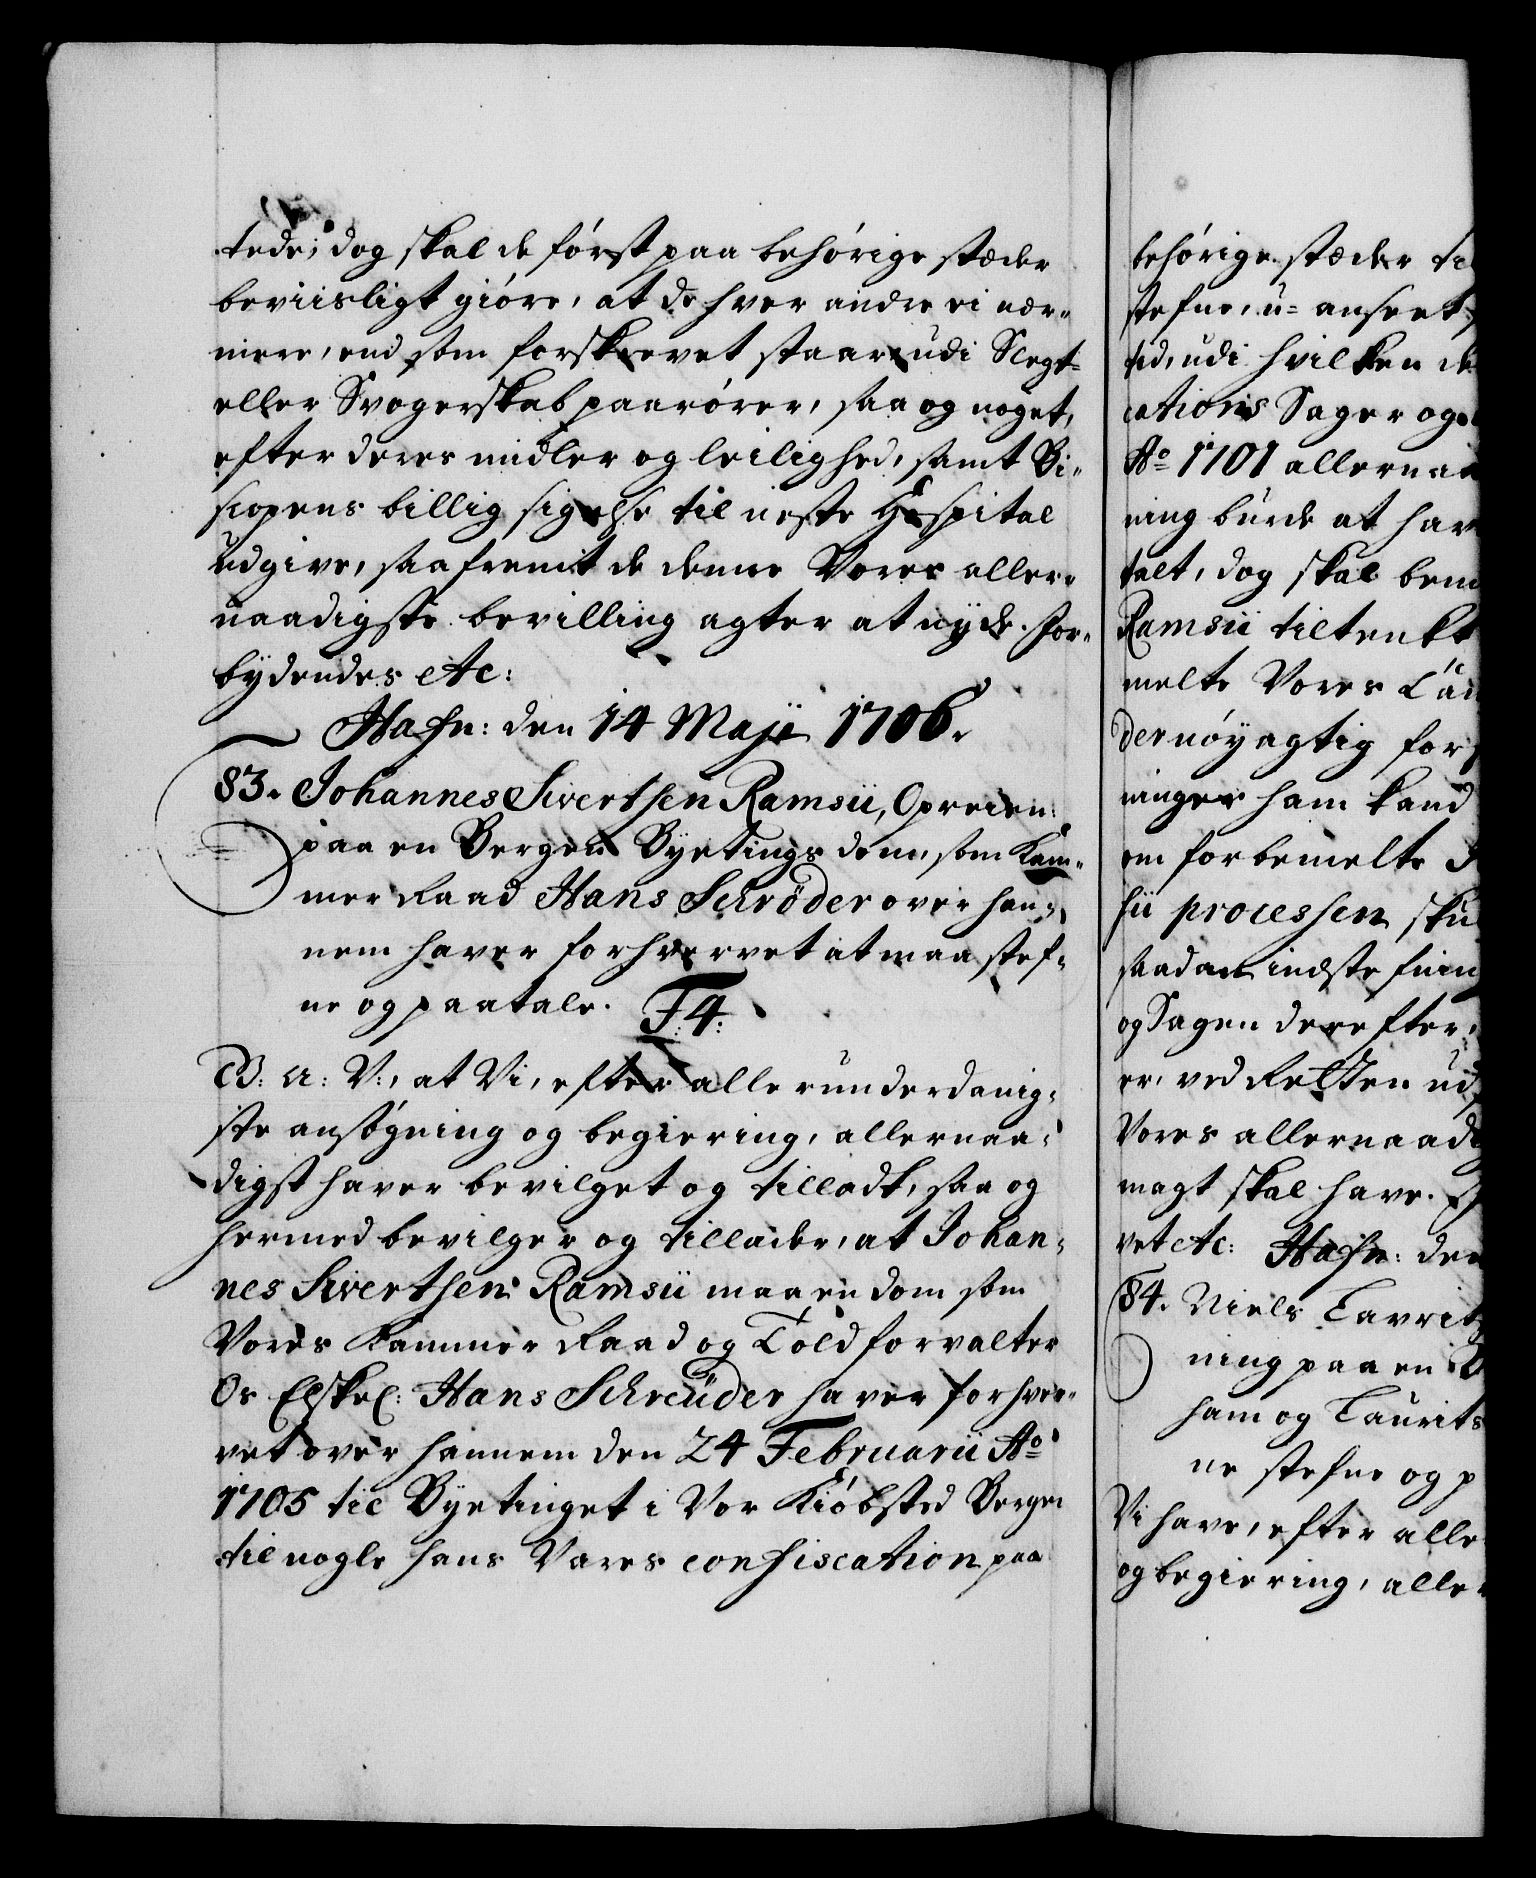 tede; dog skal de først paa behørige stæder
beviisligt giøre, at de hver andre ei nær-
mere, end som forskrevet staar, udi Slegt-
eller Svogerskab paarører, saa og noget,
efter deres midler og leilighed, samt Bi-
scopens billig sigelse til neste Hospital
udgive, saafremt de denne Vores aller-
naadigste bevilling agter at nyde. For-
bydendes etc:
Hafn: den 14 Maji 1706.
83. Johannes Siverthsen Ramsii, Opreisn:
paa en Bergens Byetings dom, som Kam-
mer Raad Hans Schrøder over han-
nem haver forhvervet at maa stef-
ne og paatale. F4:
G: A: V:, at Vi, efter allerunderdanig-
ste ansøgning og begiering, allernaa-
digst haver bevilget og tilladt, saa og
hermed bevilger og tillader, at Johan-
nes Siverthsen Ramsii maa en dom som
Vores Kammer Raad og Toldforvalter
Os Elskel: Hans Schreüder haver forhver-
vet over hannem den 24 Februarii Ao
1705 til Byetinget i Vor Kiøbsted Bergen
til nogle hans Vares confiscation paa
behørige stæder til
stefne, u-anseet
tid, udi hvilken de
cations Sager og
Ao 1701 allernaa
ning burde at hav
talt, dog skal bem
Ramsii tiltenkt
melte Vores
der nøyagtig for
ninger ham kand
om forbemelte J
sii processen sku
saadan indstefnin
og Sagen derefter,
er, ved Retten ud
Vores allernaad
magt skal have.
vet etc: Hafn: den
84. Niels Lavritz
ning paa en
ham og Laurits
ne stefne og p
Vi have, efter alle
og begiering, aller